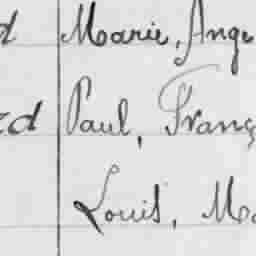 d Marie, Ange
ed Paul, Franç
Louis, Ma